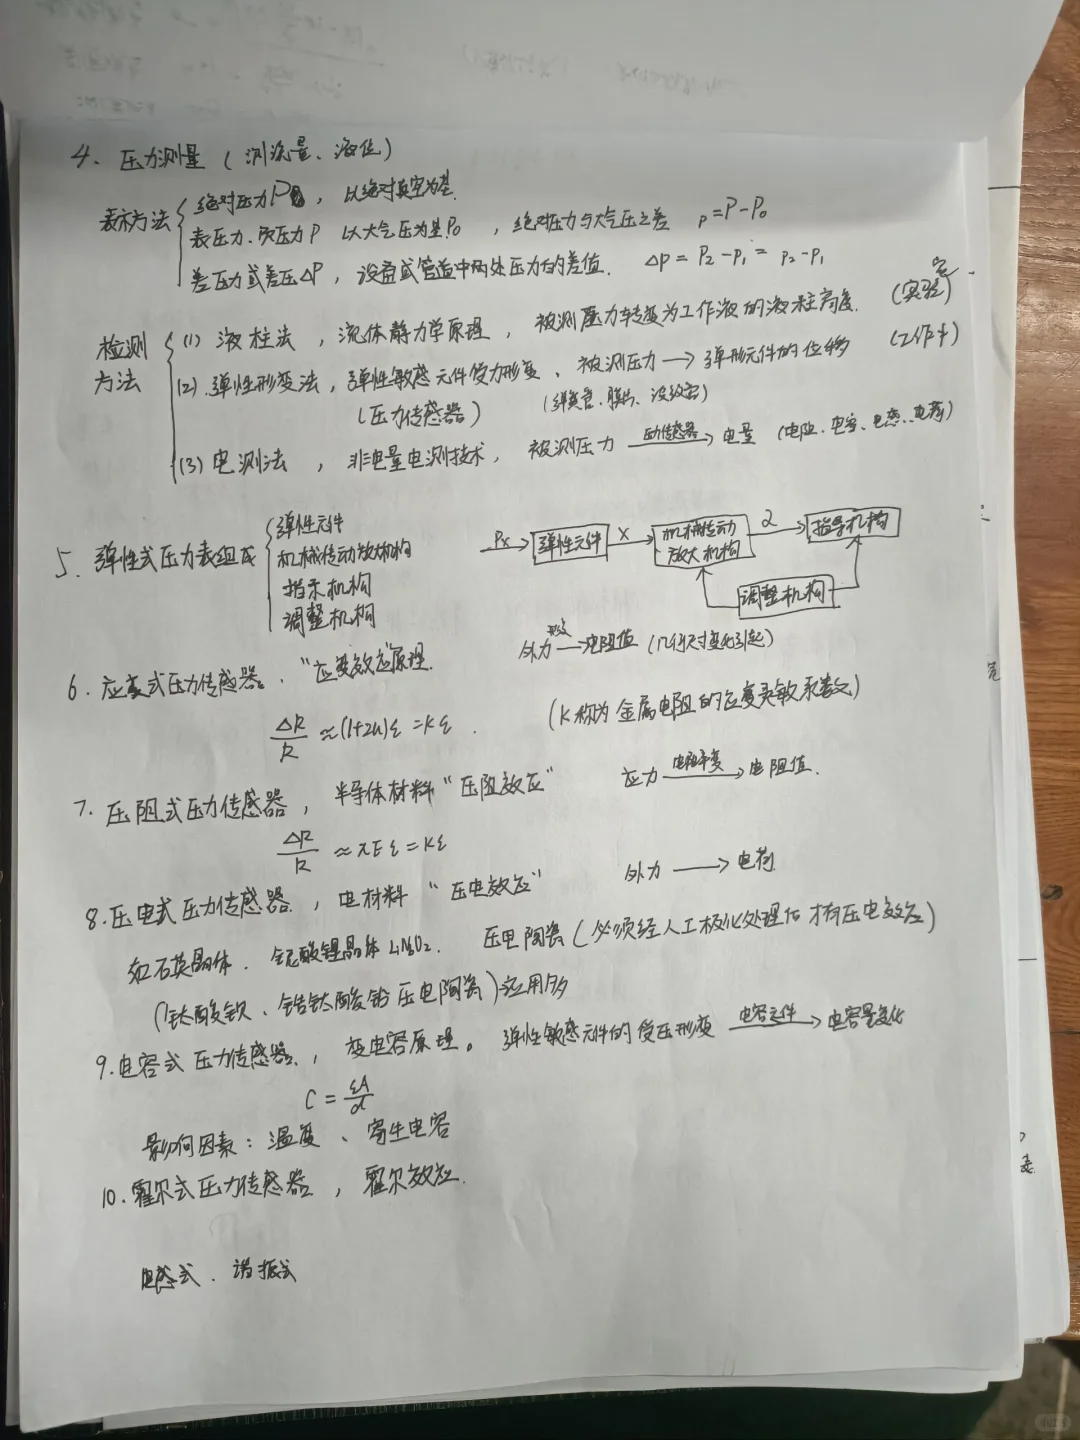 4. 压力测量（测流量、液位）
表示方法
绝对压力P，以绝对真空为基.
表压力、负压力P 以大气压为基P₀，绝对压力与大气压之差 p=P-P₀
差压力或差压ΔP，设备或管道中两处压力的差值. Δp=P₂-P₁=p₂-p₁
检测方法
(1) 液柱法，流体静力学原理，被测压力转变为工作液的液柱高度. (实验室)
(2).弹性形变法，弹性敏感元件受力形变、被测压力→弹形元件的位移 (工作中)
(压力传感器) (弹簧管、膜片、波纹管)
(3) 电测法，非电量电测技术，被测压力 压力传感器→电量 (电阻、电容、电感、电荷)
5. 弹性式压力表组成
弹性元件
机械传动放大机构
指示机构
调整机构
Px 弹性元件 X 机械传动放大机构 α 指导机构
调整机构
6. 应变式压力传感器、"应变效应"原理. 外力 形变→电阻值 (几何尺寸变化引起)
ΔR/R≈(1+2u)ε=Kε. (K称为金属电阻的应变灵敏系数)
7. 压阻式压力传感器，半导体材料"压阻效应" 应力 电阻率变→电阻值.
ΔR/R≈πEε=Kε
8.压电式压力传感器，电材料"压电效应" 外力→电荷
如石英晶体、铌酸锂晶体 、压电陶瓷(必须经人工极化处理后才有压电效应)
(钛酸钡、锆钛酸铅压电陶瓷)应用多
9.电容式压力传感器，变电容原理。弹性敏感元件的受压形变 电容元件→电容量变化
C=εA/d
影响因素：温度、寄生电容
10.霍尔式压力传感器，霍尔效应.
电感式、谐振式